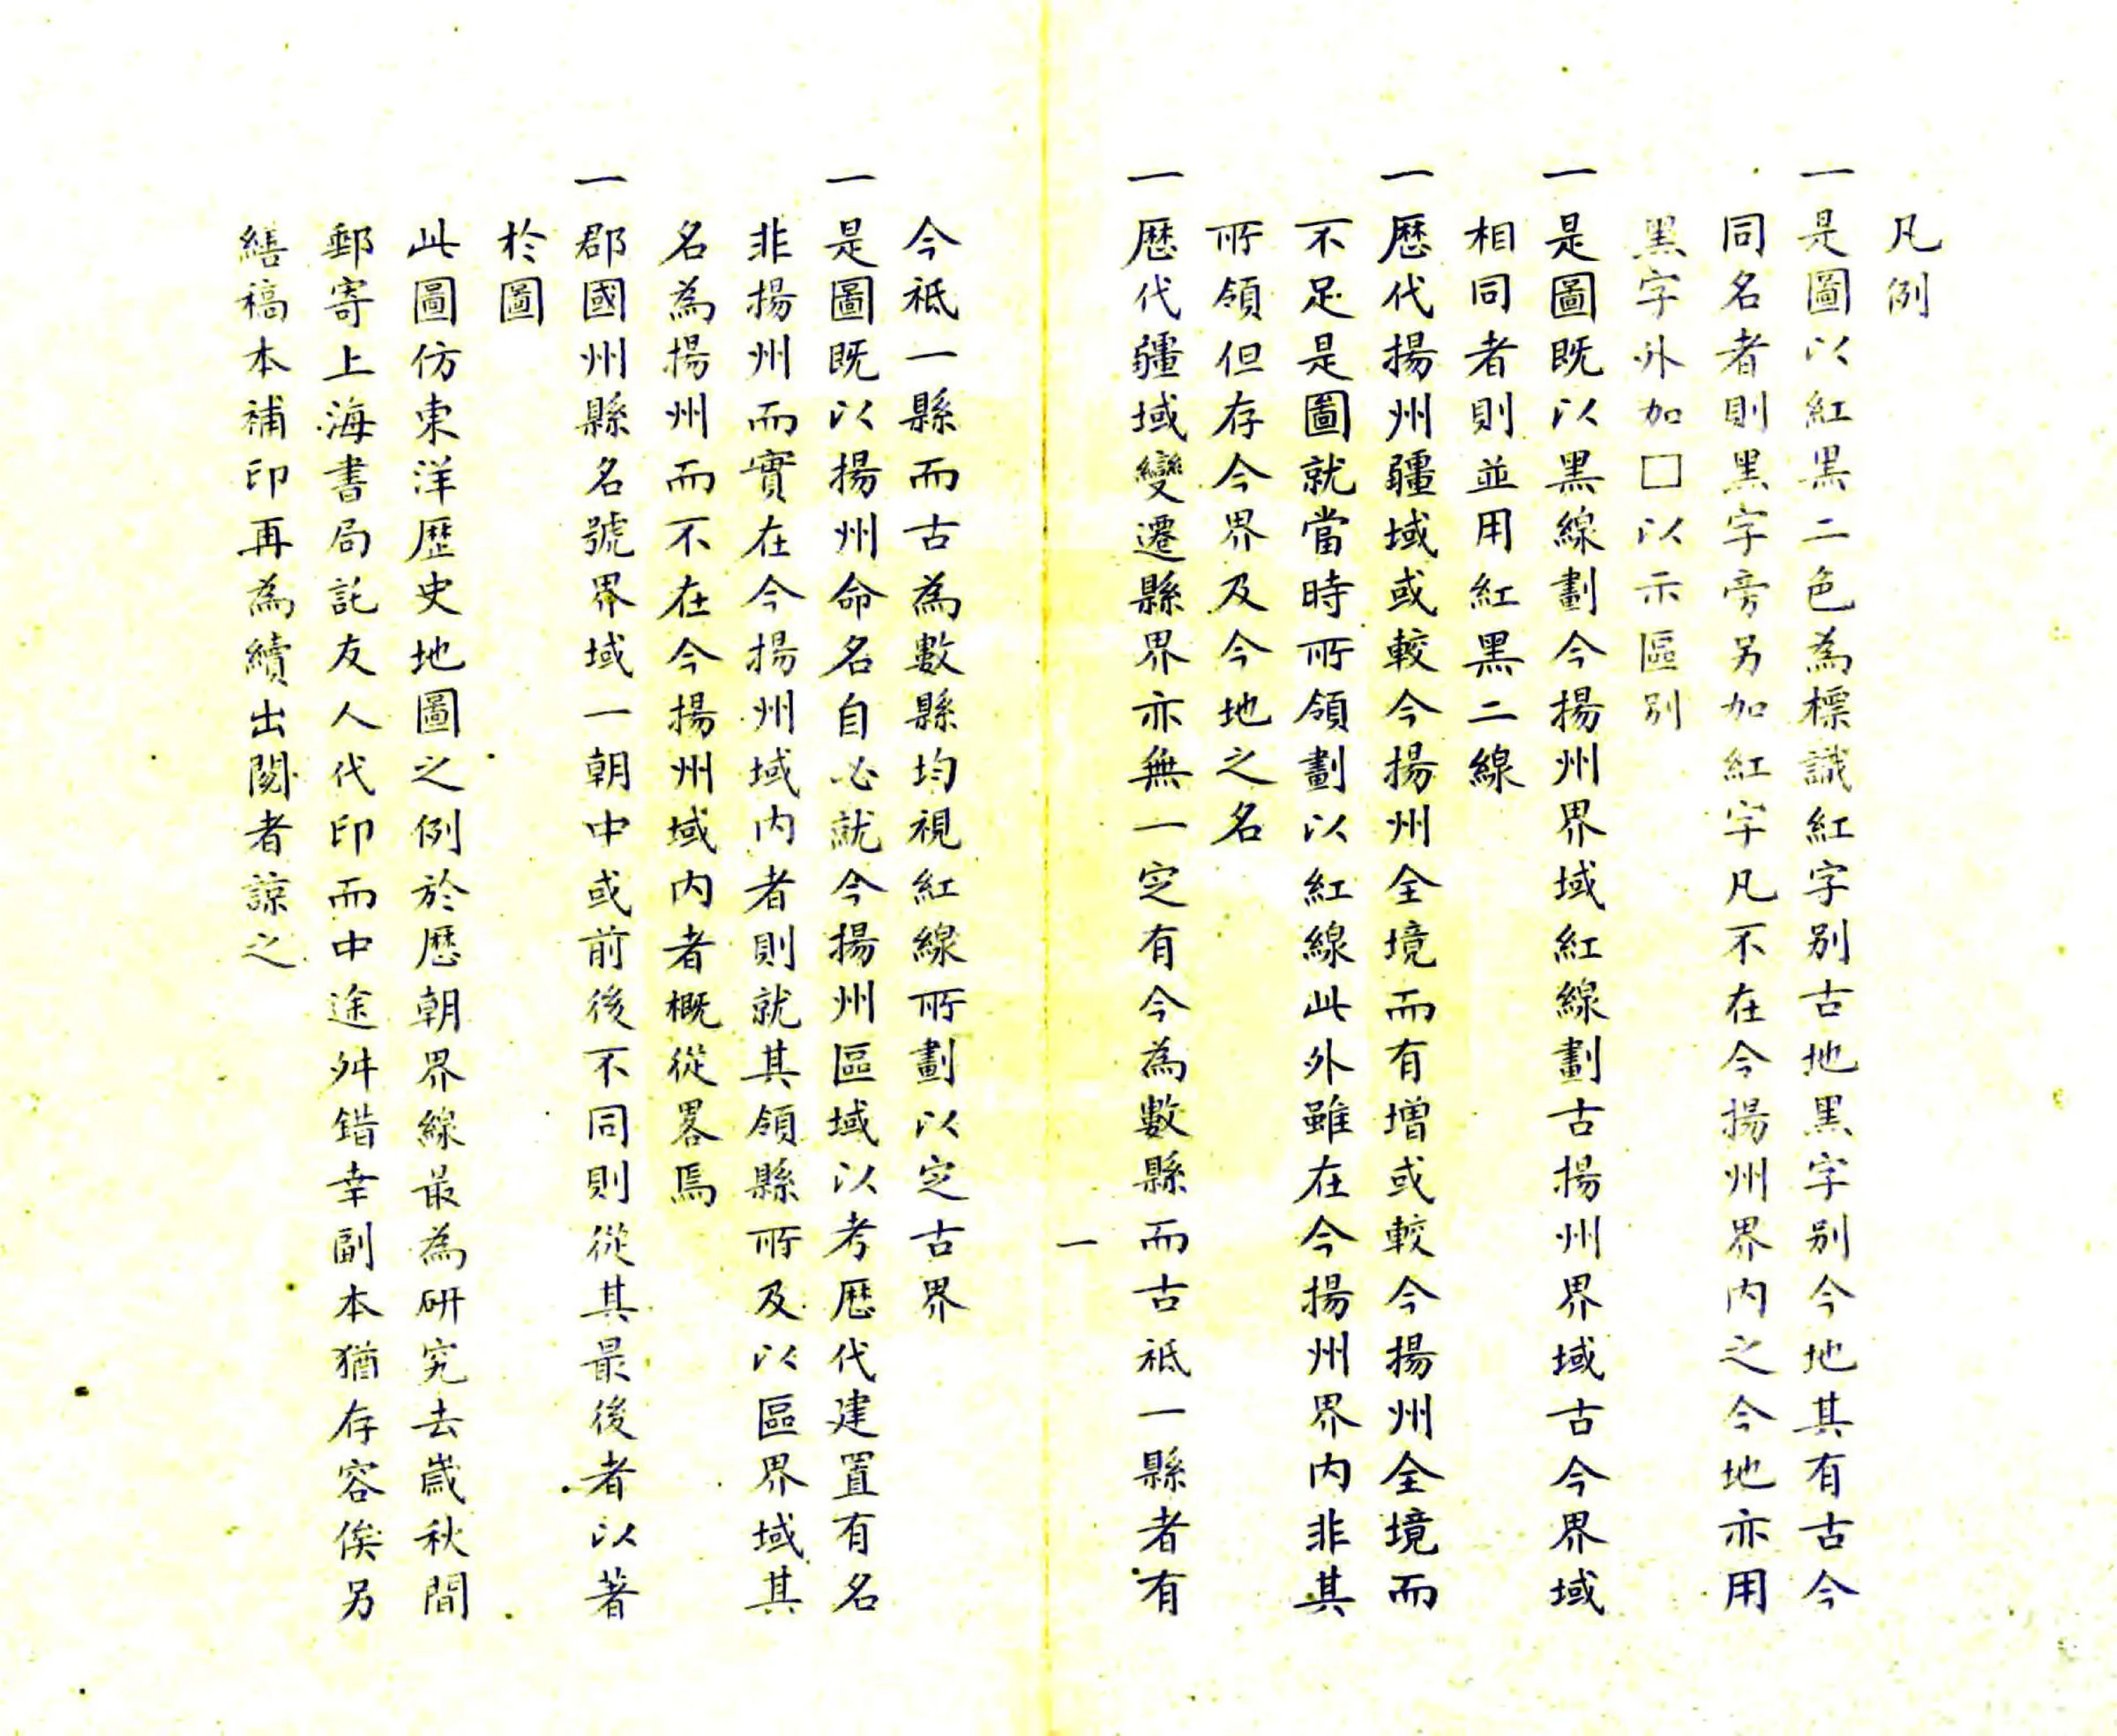 凡例
一是圖以紅黑二色為標識紅字别古地黑字别今地其有古今
同名者則黑字旁另加紅字凡不在今揚州界內之今地亦用
黑字外加囗以示區别
一是圖既以黑線劃今揚州界域紅線劃古揚州界域古今界域
相同者則並用紅黑二線
一歷代揚州疆域或較今揚州全境而有增或較今揚州全境而
不足是圖就當時所領劃以紅線此外雖在今揚州界內非其
所領但存今界及今地之名
一歷代疆域變遷縣界亦無一定有今為數縣而古祗一縣者有
一
今祗一縣而古為數縣均視紅線所劃以定古界
一是圖既以揚州命名自必就今揚州區域以考歷代建置有名
非揚州而實在今揚州域內者則就其領縣所及以區界域其
名為揚州而不在今揚州域內者概從畧焉
一郡國州縣名號界域一朝中或前後不同則從其最後者以著
於圖
此圖仿東洋歷史地圖之例於歷朝界線最為研究去歲秋間
郵寄上海書局託友人代印而中途舛錯幸副本猶存容俟另
繕稿本補印再為續出閱者諒之